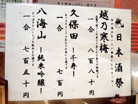 日本酒祭
越乃寒梅
一合 八百八十円
久保田 〜千寿〜
一合 七百五十円
八海山 〜純米吟醸〜
一合 七百五十円